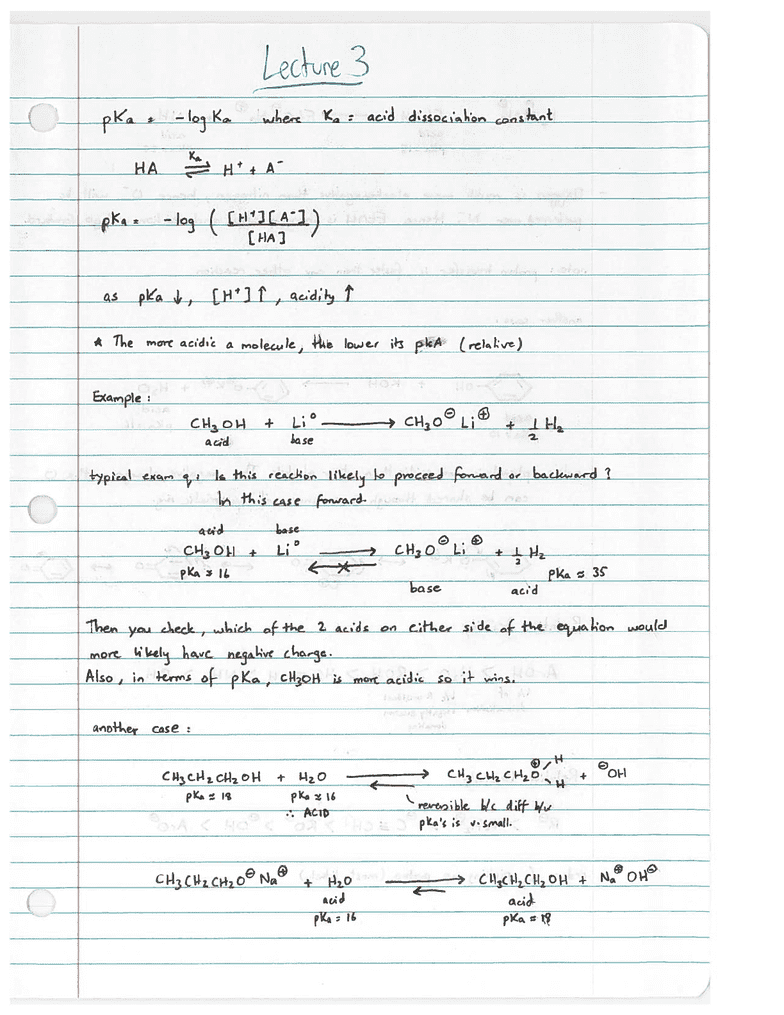 Lecture 3
pKa = -log Ka where Ka = acid dissociation constant
HA ⇌ H⁺ + A⁻
Ka
pKa = -log ( [H⁺][A⁻] / [HA] )
as pKa ↓, [H⁺]↑, acidity ↑
* The more acidic a molecule, the lower its pkA (relative)
Example:
CH3OH + Li° → CH3O⊖ Li⊕ + 1/2 H2
acid base
typical exam q: Is this reaction likely to proceed forward or backward?
In this case forward.
acid base
CH3OH + Li° → CH3O⊖ Li⊕ + 1/2 H2
pKa ≈ 16 pKa ≈ 35
base acid
Then you check, which of the 2 acids on either side of the equation would
more likely have negative charge.
Also, in terms of pKa, CH3OH is more acidic so it wins.
another case:
CH3CH2CH2OH + H2O ⇌ CH3CH2CH2O⊕ H H + ⊖OH
pKa ≈ 18 pKa ≈ 16
∴ ACID
reversible b/c diff b/w
pKa's is v. small.
CH3CH2CH2O⊖ Na⊕ + H2O ⇌ CH3CH2CH2OH + Na⊕ OH⊖
acid acid
pKa = 16 pKa = 18